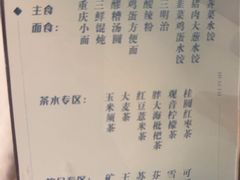 主食
面食:
重庆小面
三鲜馄饨
醪糟汤圆
鸡蛋方便面
酸辣粉
三明治
韭菜鸡蛋水饺
猪肉大葱水饺
菜水饺
茶水专区:
玉米须茶
大麦茶
红豆薏米茶
胖大海枇杷茶
观音柠檬茶
桂圆红枣茶
矿
王
苏
芬
雪
可